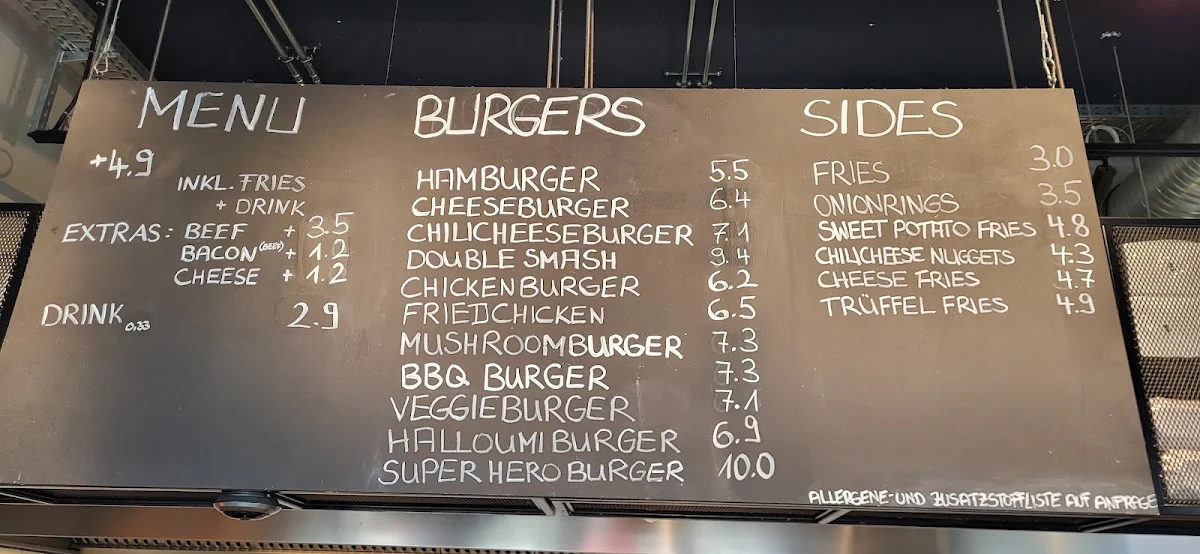 MENU
+4.9
INKL. FRIES
+ DRINK
EXTRAS: BEEF + 3.5
BACON (BEEF) + 1.2
CHEESE + 1.2
DRINK 0,33 2.9
BURGERS
HAMBURGER 5.5
CHEESEBURGER 6.4
CHILICHEESEBURGER 7.1
DOUBLE SMASH 9.4
CHICKENBURGER 6.2
FRIEDCHICKEN 6.5
MUSHROOMBURGER 7.3
BBQ BURGER 7.3
VEGGIEBURGER 7.1
HALLOUMI BURGER 6.9
SUPER HERO BURGER 10.0
SIDES
FRIES 3.0
ONIONRINGS 3.5
SWEET POTATO FRIES 4.8
CHILICHEESE NUGGETS 4.3
CHEESE FRIES 4.7
TRÜFFEL FRIES 4.9
ALLERGENE-UND ZUSATZSTOFFLISTE AUF ANFRAGE